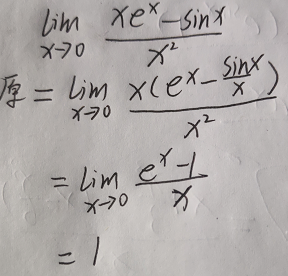 lim x→0 (xe^x - sinx)/x²
原 = lim x→0 x(e^x - sinx/x)/x²
= lim x→0 (e^x - 1)/x
= 1